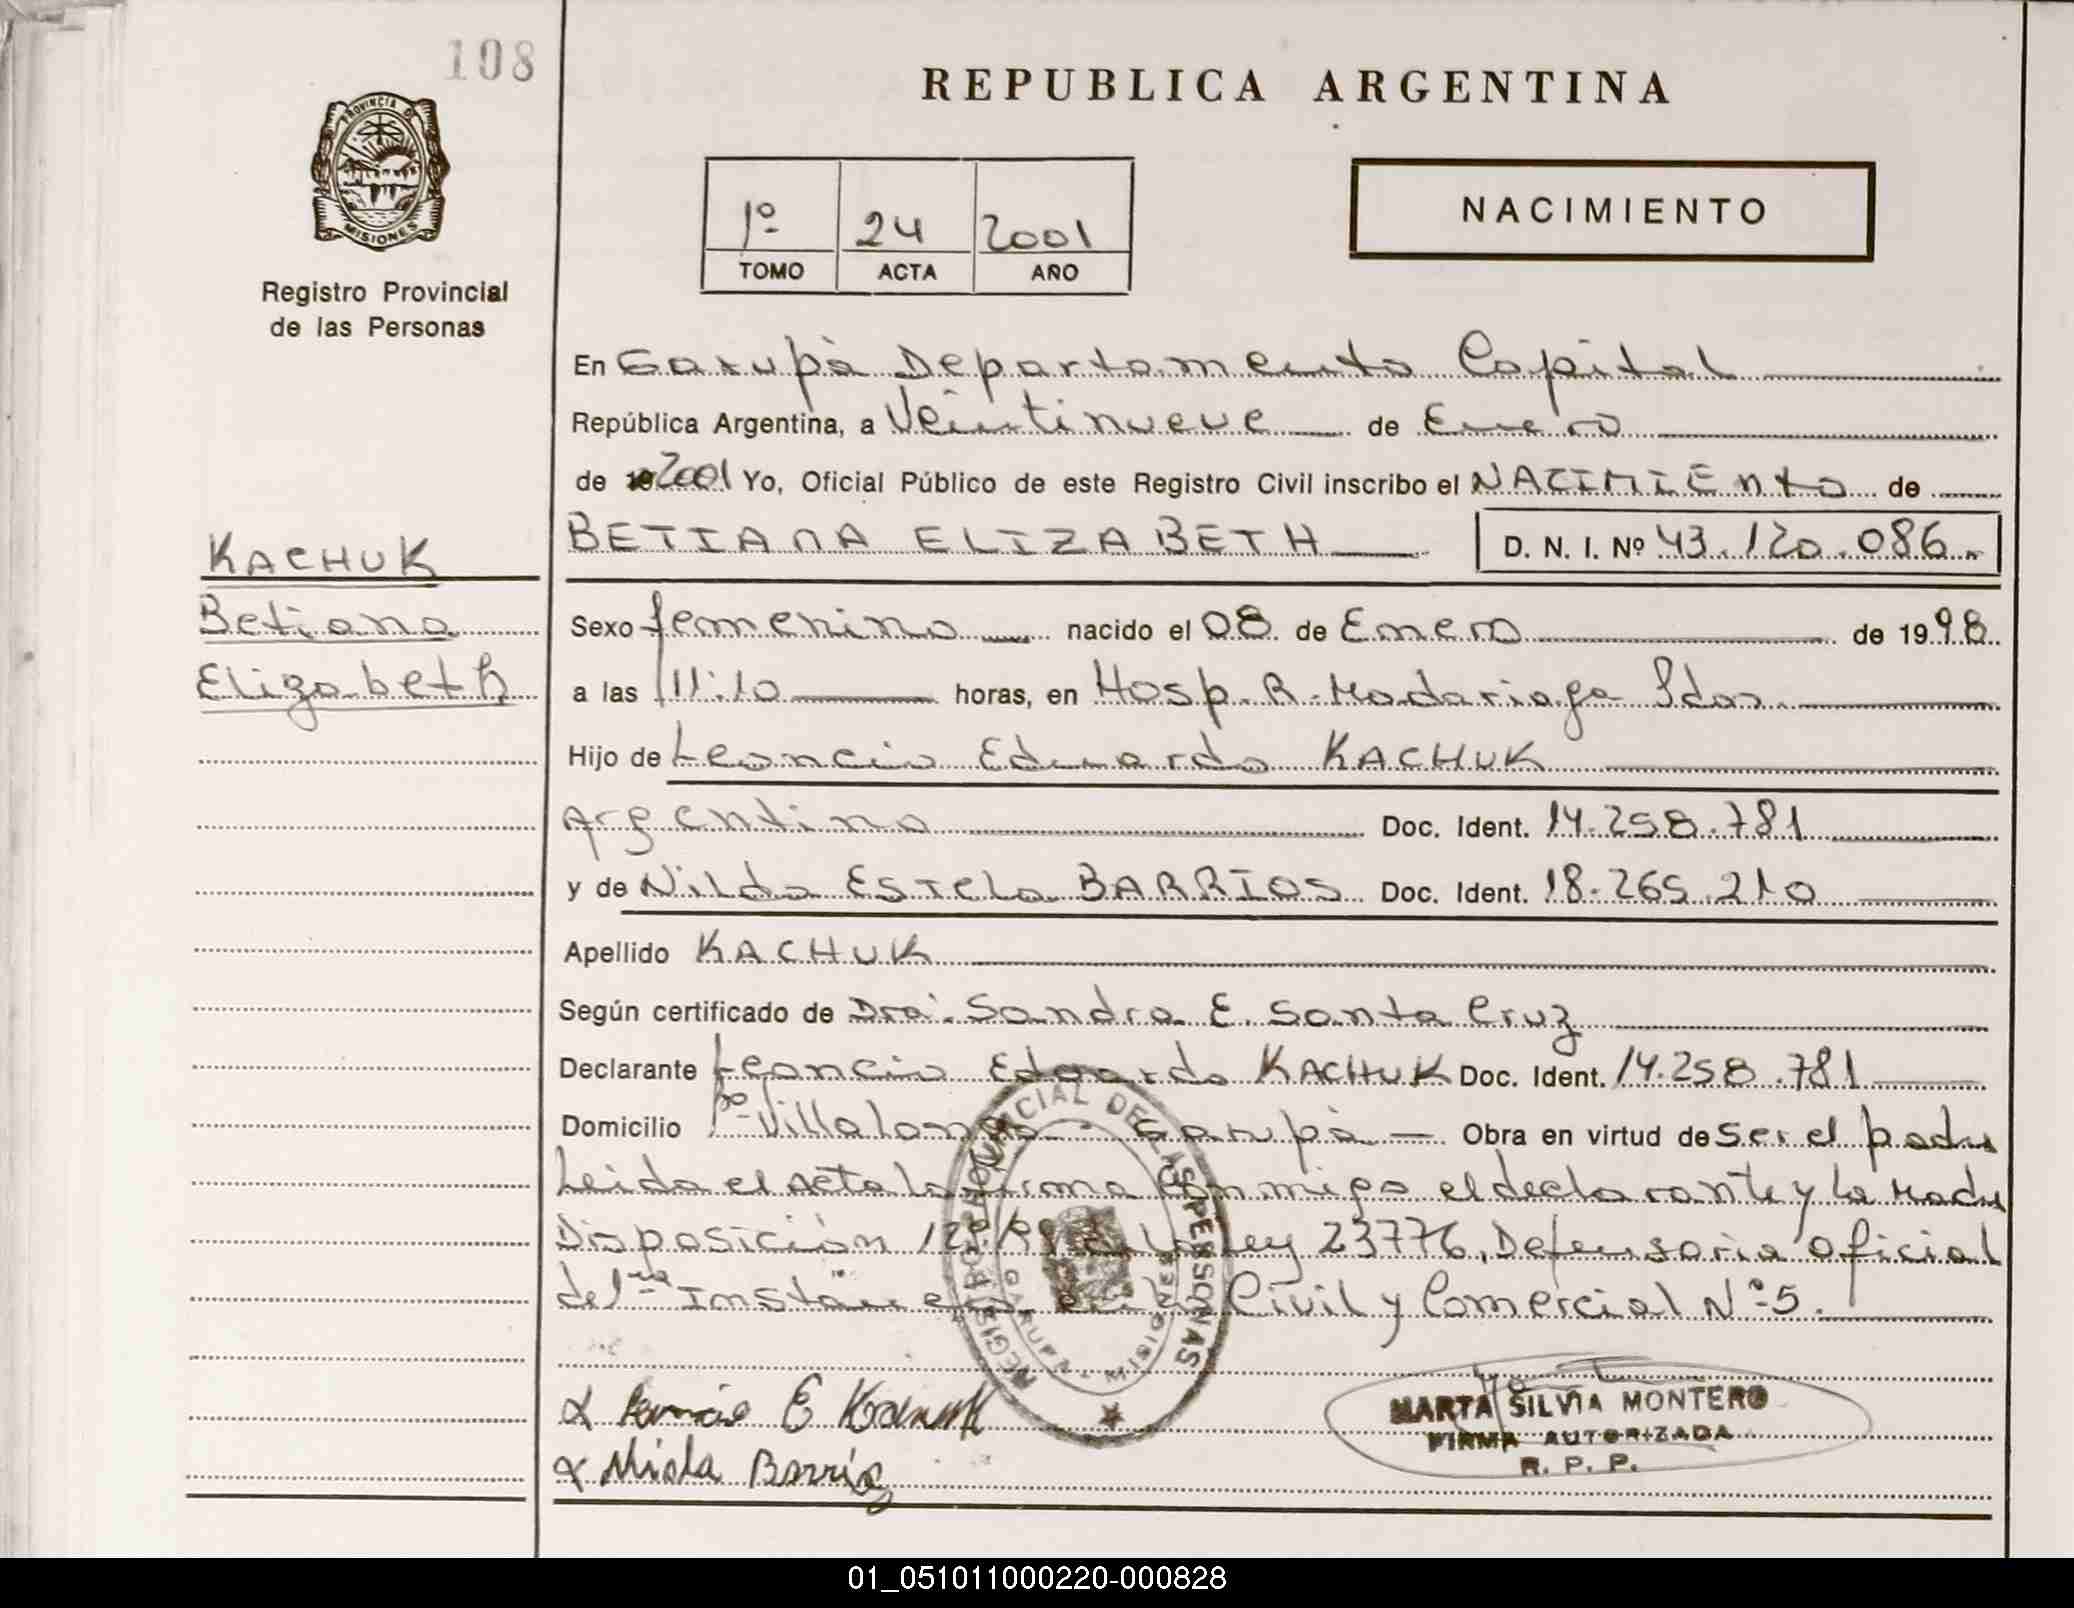 108
REPUBLICA ARGENTINA
PROVINCIA DE
MISIONES
Registro Provincial
de las Personas
1º 24 2001
TOMO ACTA AÑO
NACIMIENTO
En Garupà Departamento Capital
República Argentina, a Veintinueve de Enero
de 2001 Yo, Oficial Público de este Registro Civil inscribo el NACIMIENTO de
KACHUK
Betiana
Elizabeth
BETIANA ELIZABETH D. N. I. Nº 43.120.086
Sexo femenino nacido el 08 de Enero de 1998
a las 11:10 horas, en Hosp. R. Madariaga Pdas.
Hijo de Leoncio Eduardo KACHUK
Argentino Doc. Ident. 14.258.781
y de Nilda Estela BARRIOS Doc. Ident. 18.265.210
Apellido KACHUK
Según certificado de Dra. Sandra E. Santa Cruz
Declarante Leoncio Edgardo KACHUK Doc. Ident. 14.258.781
Domicilio Bº Villalonga - Garupà Obra en virtud de ser el padre
Leida el acta la firma conmigo el declarante y la Madre
Disposición Ley 23776, Defensoria oficial
de 1ra Instancia en lo Civil y Comercial Nº 5.
REGISTRO PROVINCIAL DE LAS PERSONAS
GARUPA - MISIONES
E Kachuk
Barrios
MARTA SILVIA MONTERO
FIRMA AUTORIZADA
R. P. P.
01_051011000220-000828